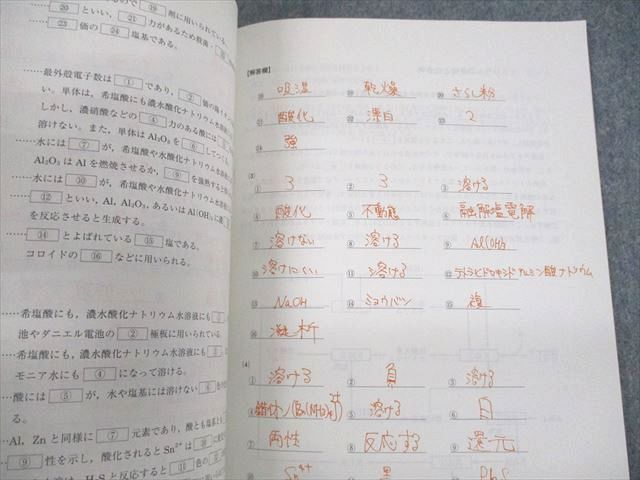 ので ⑲ 剤に用いられている。
⑳ といい、 ㉑ 力があるため殺菌・
㉓ 価の ㉔ 塩基である。
……最外殻電子数は ① であり、 ② 価の陽イオン
い。単体は、希塩酸にも濃水酸化ナトリウム水溶液
しかし、濃硝酸などの ④ 力のある酸には
溶けない。また、単体はAl₂O₃を ⑥ してつくる
……水には ⑦ が、希塩酸や水酸化ナトリウム水溶液
Al₂O₃はAlを燃焼させるか、 ⑨ を強熱すると
……水には ⑩ が、希塩酸や水酸化ナトリウム水溶液
⑫ といい、Al, Al₂O₃, あるいはAl(OH)₃に
を反応させると生成する。
⑭ とよばれている ⑮ 塩である。
コロイドの ⑯ などに用いられる。
……希塩酸にも、濃水酸化ナトリウム水溶液にも ①
池やダニエル電池の ② 極板に用いられている。
……希塩酸にも、濃水酸化ナトリウム水溶液にも ③
モニア水にも ④ になって溶ける。
……酸には ⑤ が、水や塩基には溶けない ⑥ 色
……Al, Znと同様に ⑦ 元素であり、酸とも塩基とも
⑨ 性を示し、酸化されるとSn²⁺は ⑩ に
H₂Sと反応すると ⑪ 色の
【解答欄】
⑱ 吸湿 ⑲ 乾燥 ⑳ さらし粉
㉑ 酸化 ㉒ 漂白 ㉓ 2
㉔ 強
(3)
① 3 ② 3 ③ 溶ける
④ 酸化 ⑤ 不動態 ⑥ 融解塩電解
⑦ 溶けない ⑧ 溶ける ⑨ Al(OH)₃
⑩ 溶けにくい ⑪ 溶ける ⑫ テトラヒドロキシドアルミン酸ナトリウム
⑬ NaOH ⑭ ミョウバン ⑮ 複
⑯ 凝析
(4)
① 溶ける ② 負 ③ 溶ける
④ 錯イオン ⑤ 溶ける ⑥ 白
⑦ 両性 ⑧ 反応する ⑨ 還元
Sn⁴⁺ 黒 PbS